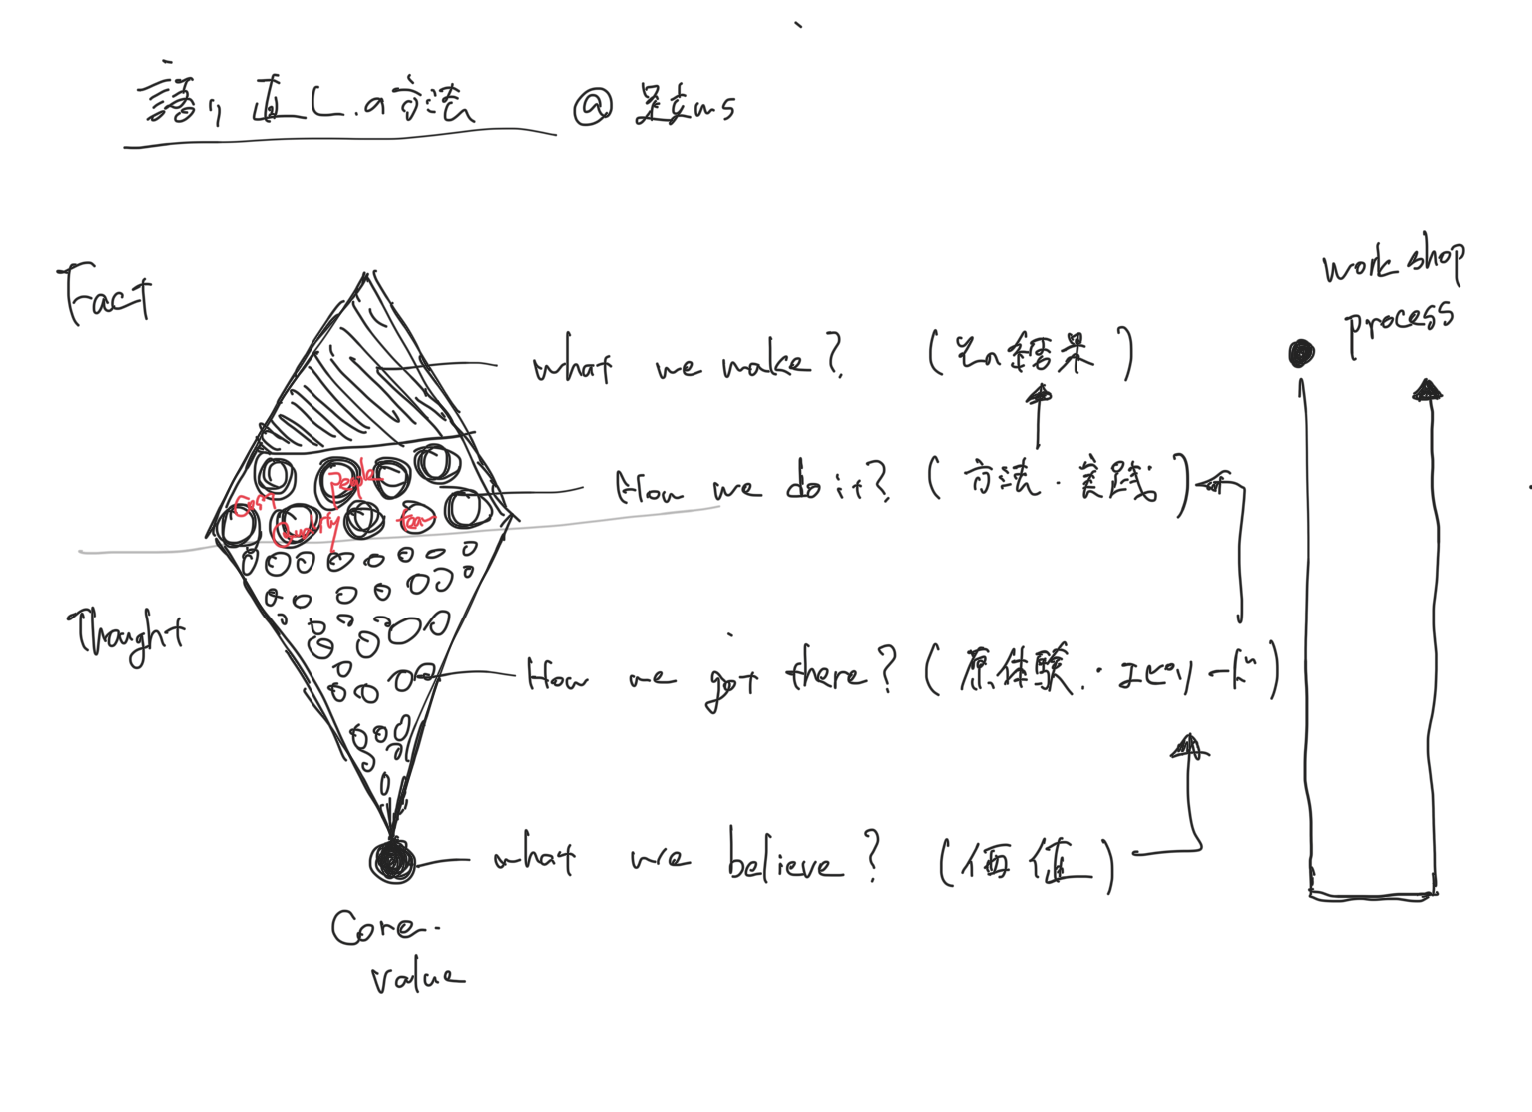 語り直しの方法 @ 足立ms
Fact
workshop
process
what we make? (その結果)
How we do it? (方法・実践)
People
Quality
team
Thought
How we got there? (原体験・エピソード)
what we believe? (価値)
Core
value